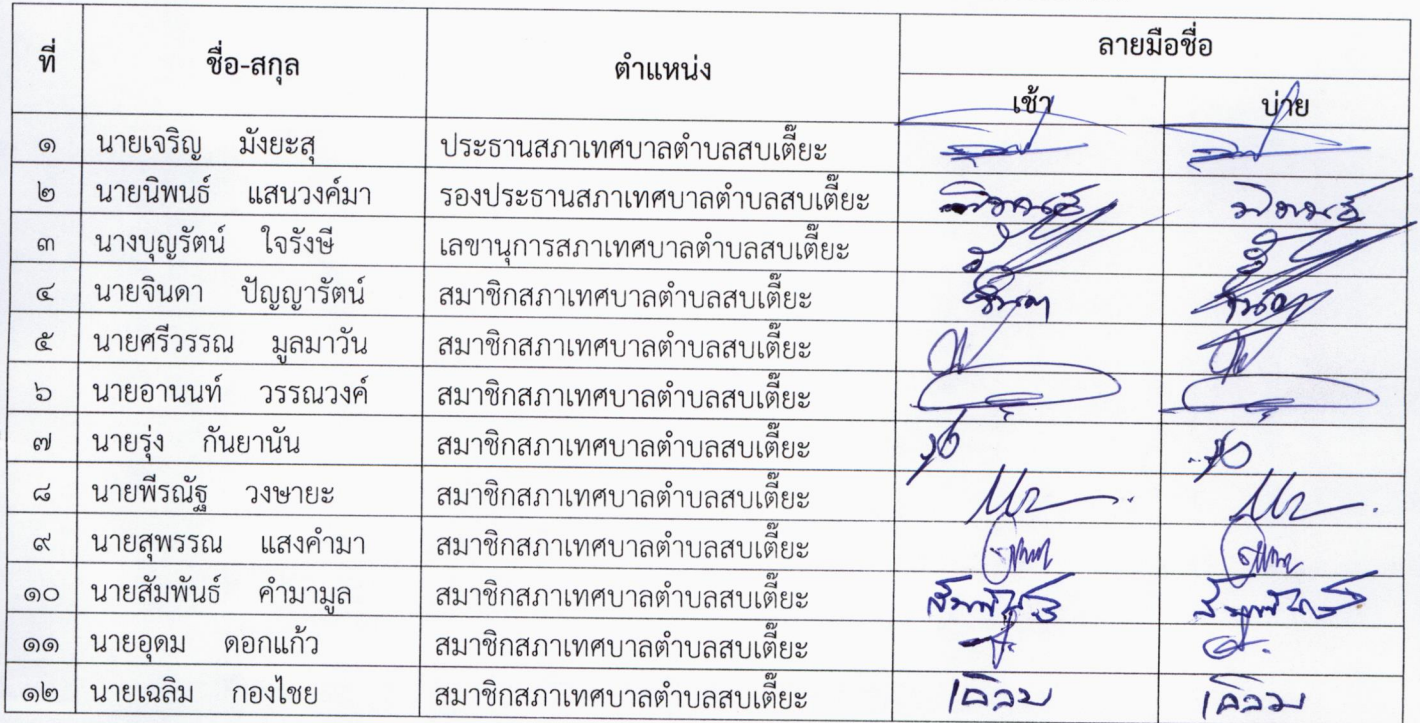 ที่ ชื่อ-สกุล ตำแหน่ง ลายมือชื่อ
เช้า บ่าย
๑ นายเจริญ มังยะสุ ประธานสภาเทศบาลตำบลสบเตี๊ยะ
๒ นายนิพนธ์ แสนวงค์มา รองประธานสภาเทศบาลตำบลสบเตี๊ยะ นิพนธ์ นิพนธ์
๓ นางบุญรัตน์ ใจรังษี เลขานุการสภาเทศบาลตำบลสบเตี๊ยะ
๔ นายจินดา ปัญญารัตน์ สมาชิกสภาเทศบาลตำบลสบเตี๊ยะ จินดา จินดา
๕ นายศรีวรรณ มูลมาวัน สมาชิกสภาเทศบาลตำบลสบเตี๊ยะ
๖ นายอานนท์ วรรณวงค์ สมาชิกสภาเทศบาลตำบลสบเตี๊ยะ
๗ นายรุ่ง กันยานัน สมาชิกสภาเทศบาลตำบลสบเตี๊ยะ
๘ นายพีรณัฐ วงษายะ สมาชิกสภาเทศบาลตำบลสบเตี๊ยะ
๙ นายสุพรรณ แสงคำมา สมาชิกสภาเทศบาลตำบลสบเตี๊ยะ
๑๐ นายสัมพันธ์ คำมามูล สมาชิกสภาเทศบาลตำบลสบเตี๊ยะ สัมพันธ์ สัมพันธ์
๑๑ นายอุดม ดอกแก้ว สมาชิกสภาเทศบาลตำบลสบเตี๊ยะ
๑๒ นายเฉลิม กองไชย สมาชิกสภาเทศบาลตำบลสบเตี๊ยะ เฉลิม เฉลิม